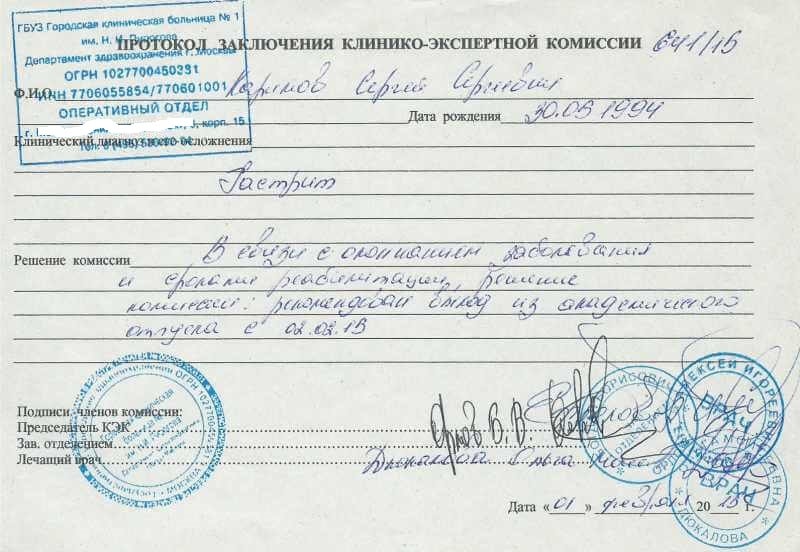 ГБУЗ Городская клиническая больница № 1
им. Н. И. Пирогова
Департамент здравоохранения г. Москвы
ОГРН 1027700450381
ИНН 7706055854/770601001
ОПЕРАТИВНЫЙ ОТДЕЛ
корп. 15
ПРОТОКОЛ ЗАКЛЮЧЕНИЯ КЛИНИКО-ЭКСПЕРТНОЙ КОМИССИИ 641/15
Ф.И.О. Каримов Сергей Сергеевич
Дата рождения 30.05.1994
Клинический диагноз, его осложнения
Гастрит
Решение комиссии В связи с окончанием заболевания
и сроками реабилитации, решение
комиссии: рекомендован выход из академического
отпуска с 02.02.15
Подписи членов комиссии:
Председатель КЭК
Зав. отделением
Лечащий врач
ВРАЧ
АЛЕКСЕЙ ИГОРЕВИЧ
ВРАЧ
ЛЮКАЛОВА
Дата «01» февраля 2015 г.